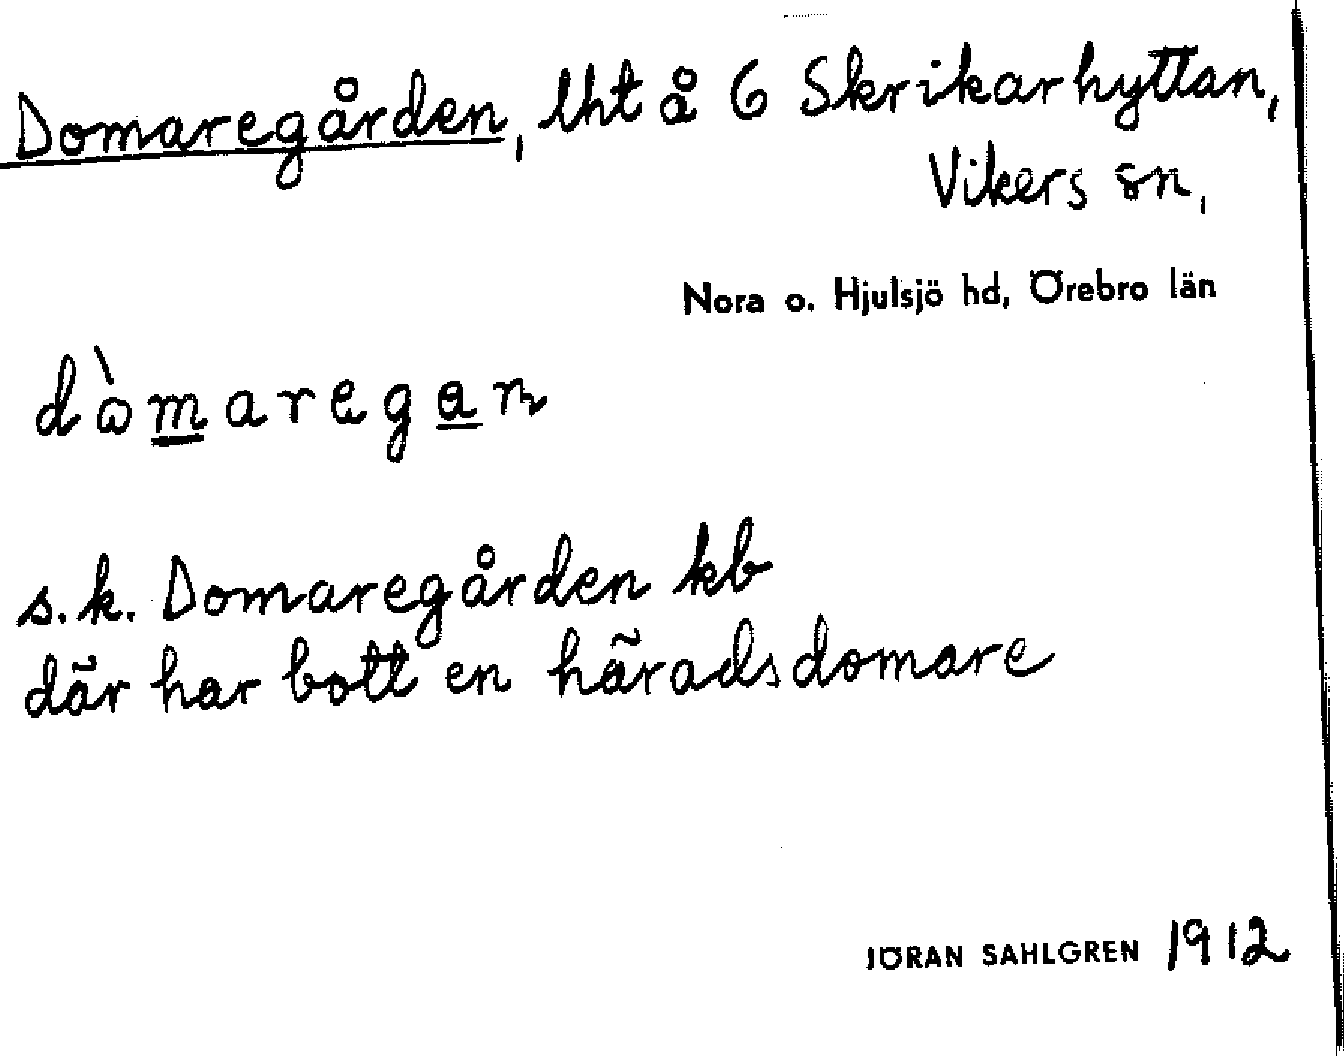 Domaregården, lht å 6 Skrikarhyttan,
Vikers sn,
Nora o. Hjulsjö hd, Örebro län
dòmaregan
s.k. Domaregården kb
där har bott en häradsdomare
JÖRAN SAHLGREN 1912